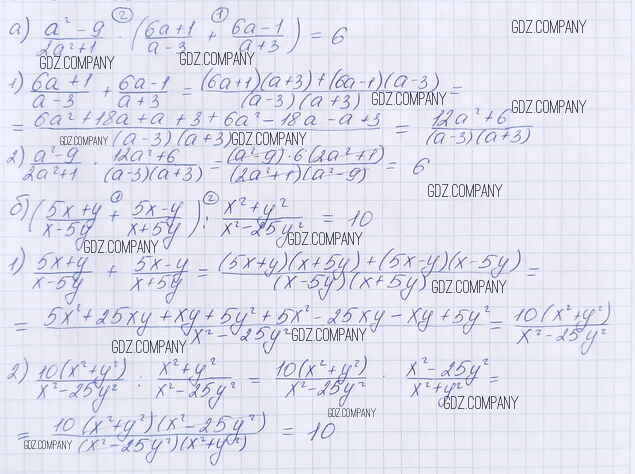 а) (a² - 9)/(2a² + 1) · ((6a + 1)/(a - 3) + (6a - 1)/(a + 3)) = 6
② ①
GDZ.COMPANY
GDZ.COMPANY GDZ.COMPANY
1) (6a + 1)/(a - 3) + (6a - 1)/(a + 3) = ((6a + 1)(a + 3) + (6a - 1)(a - 3))/((a - 3)(a + 3)) =
GDZ.COMPANY
= (6a² + 18a + a + 3 + 6a² - 18a - a + 3)/((a - 3)(a + 3)) = (12a² + 6)/((a - 3)(a + 3))
GDZ.COMPANY
GDZ.COMPANY GDZ.COMPANY
2) (a² - 9)/(2a² + 1) · (12a² + 6)/((a - 3)(a + 3)) = ((a² - 9) · 6(2a² + 1))/((2a² + 1)(a² - 9)) = 6
GDZ.COMPANY
б) ((5x + y)/(x - 5y) + (5x - y)/(x + 5y)) : (x² + y²)/(x² - 25y²) = 10
① ②
GDZ.COMPANY GDZ.COMPANY
1) (5x + y)/(x - 5y) + (5x - y)/(x + 5y) = ((5x + y)(x + 5y) + (5x - y)(x - 5y))/((x - 5y)(x + 5y)) =
GDZ.COMPANY
= (5x² + 25xy + xy + 5y² + 5x² - 25xy - xy + 5y²)/(x² - 25y²) = 10(x² + y²)/(x² - 25y²)
GDZ.COMPANY GDZ.COMPANY
2) 10(x² + y²)/(x² - 25y²) : (x² + y²)/(x² - 25y²) = 10(x² + y²)/(x² - 25y²) · (x² - 25y²)/(x² + y²) =
GDZ.COMPANY
GDZ.COMPANY
= (10(x² + y²)(x² - 25y²))/((x² - 25y²)(x² + y²)) = 10
GDZ.COMPANY